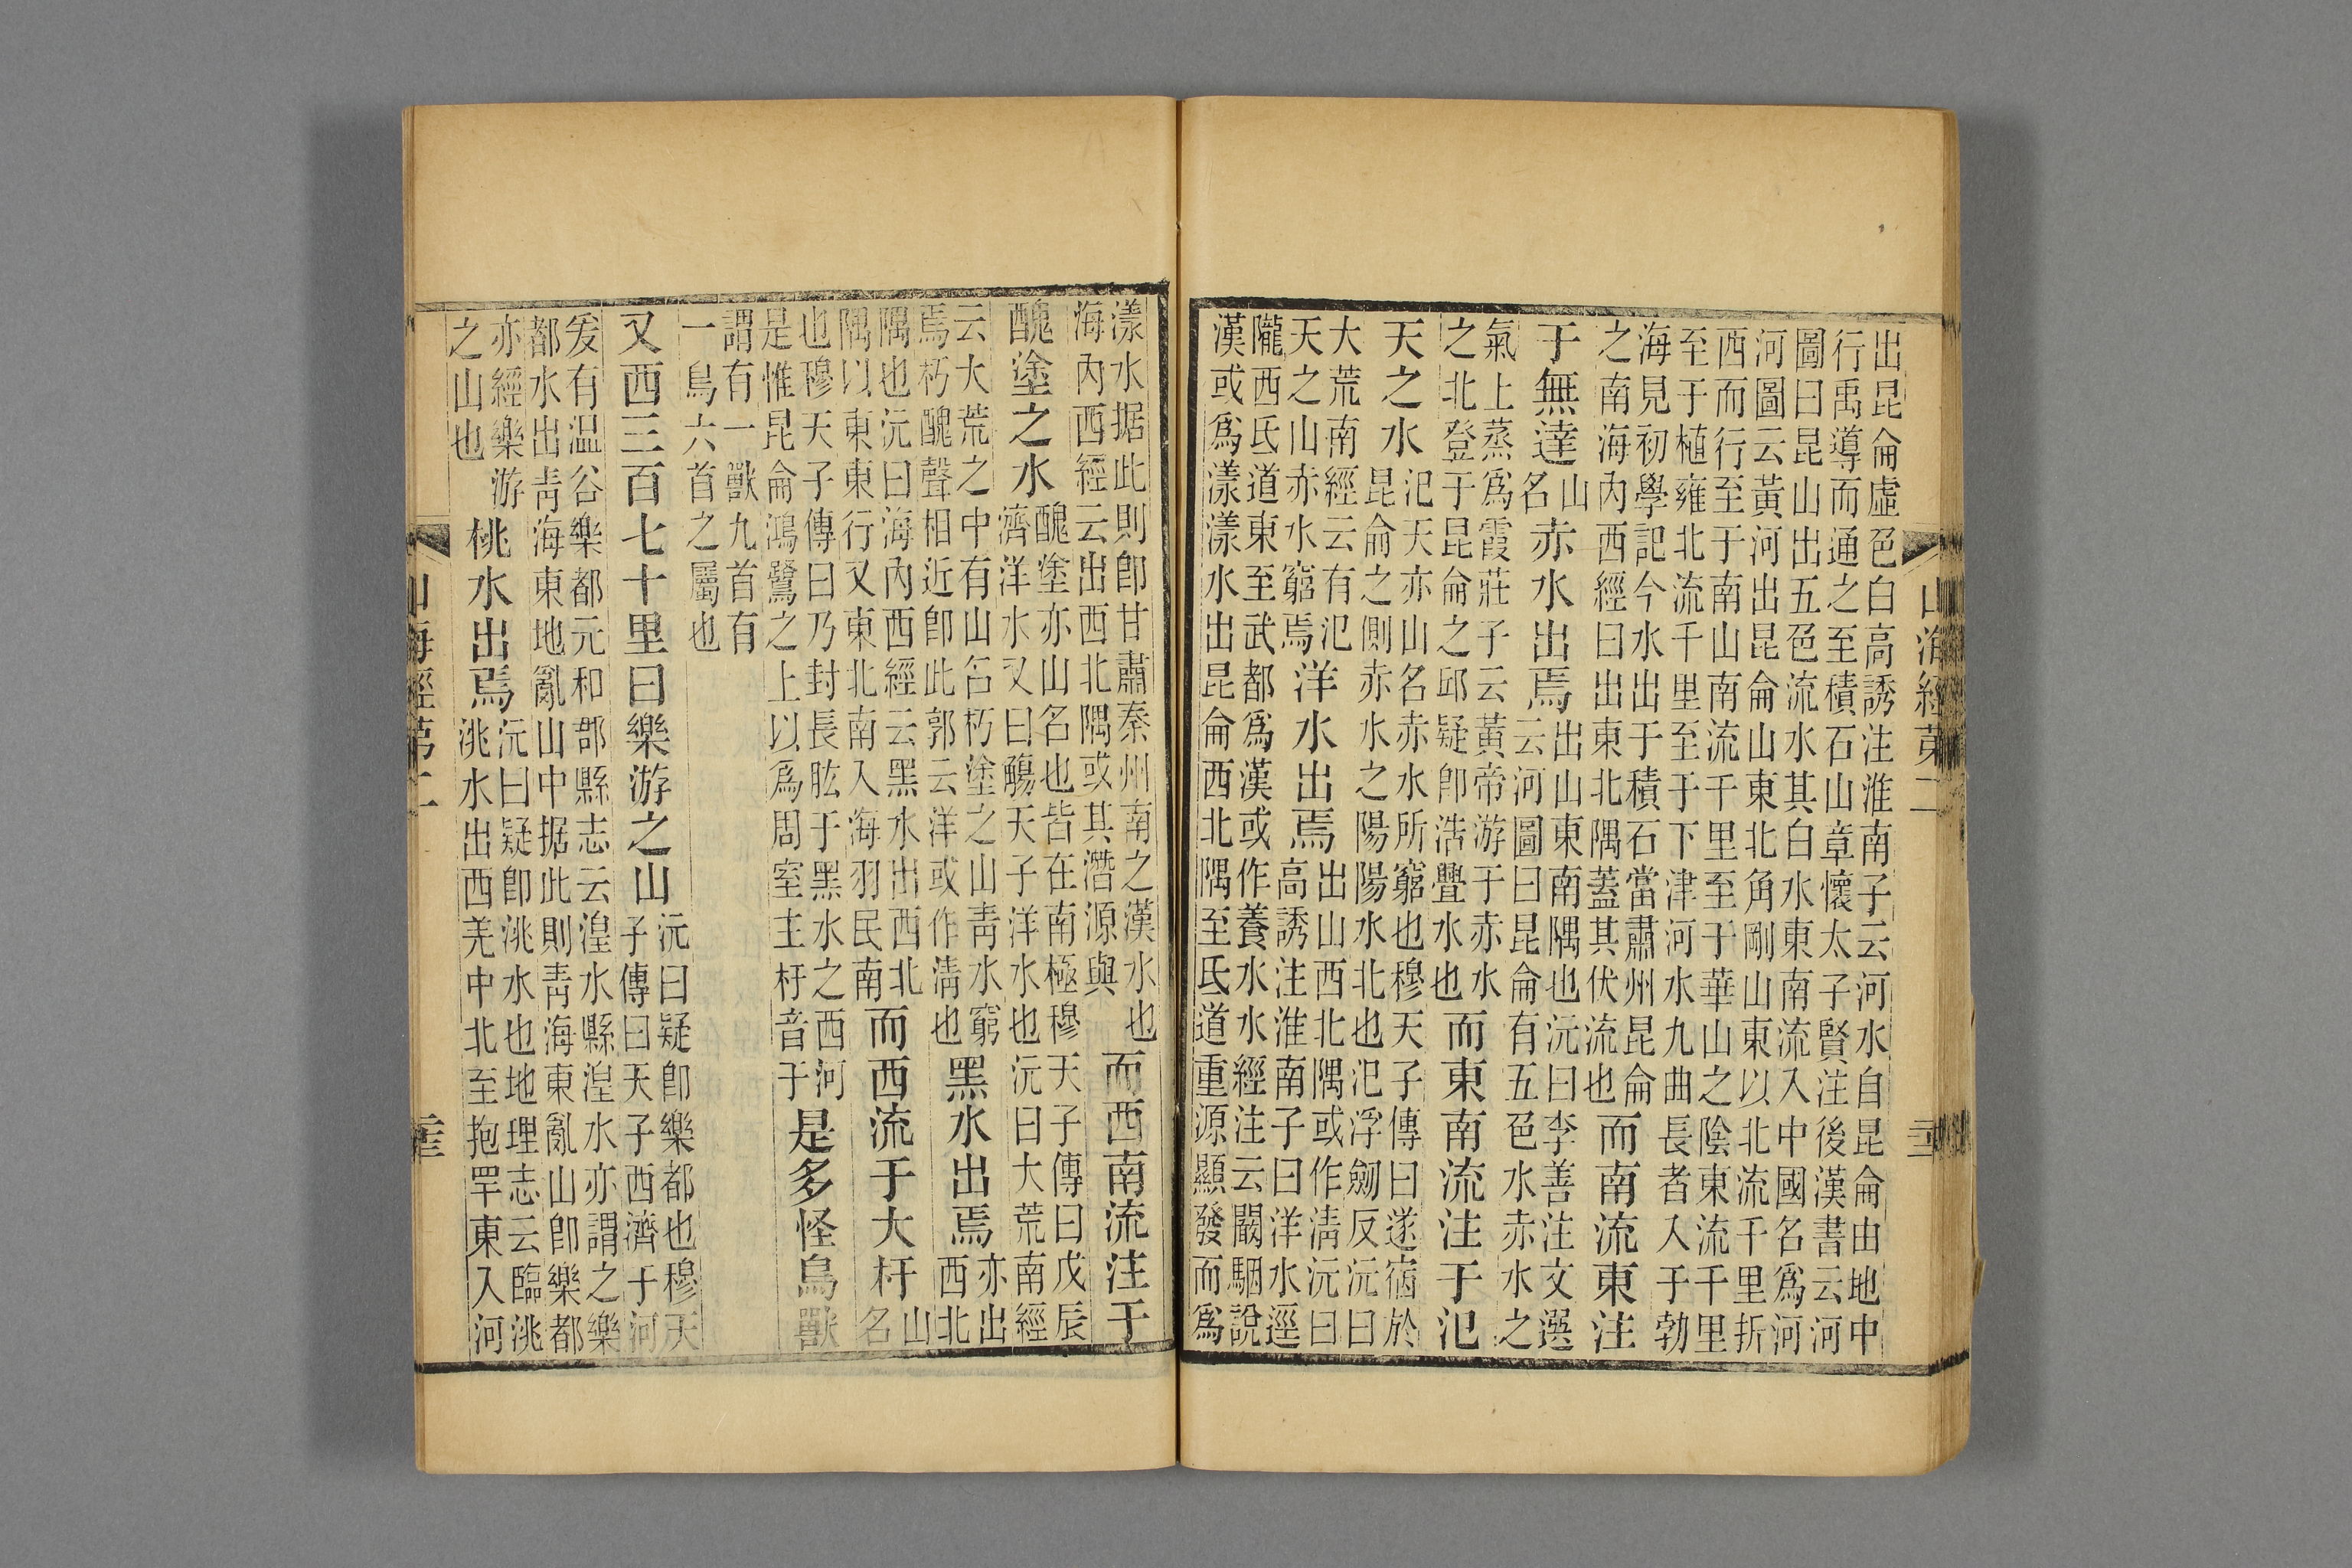 山海經第二
出昆侖虛色白高誘注淮南子云河水自昆侖由地中
行禹導而通之至積石山章懷太子賢注後漢書云河
圖曰昆山出五色流水其白水東南流入中國名爲河
河圖云黃河出昆侖山東北角剛山東以北流千里折
西而行至于南山南流千里至于華山之陰東流千里
至于植雍北流千里至于下津河水九曲長者入于勃
海見初學記今水出于積石當肅州昆侖
之南海內西經曰出東北隅蓋其伏流也
而南流東注
于無達
山
名
赤水出焉
出山東南隅也沅曰李善注文選
云河圖曰昆侖有五色水赤水之
氣上蒸爲霞莊子云黃帝游于赤水
之北登于昆侖之邱疑卽浩亹水也
而東南流注于氾
天之水
氾天亦山名赤水所窮也穆天子傳曰遂宿於
昆侖之側赤水之陽陽水北也氾浮劒反沅曰
大荒南經云有氾
天之山赤水窮焉
洋水出焉
出山西北隅或作淸沅曰
高誘注淮南子曰洋水逕
隴西氐道東至武都爲漢或作養水水經注云闞駰說
漢或爲漾漾水出昆侖西北隅至氐道重源顯發而爲
漾水据此則卽甘肅秦州南之漢水也
海內西經云出西北隅或其潛源與
而西南流注于
醜塗之水
醜塗亦山名也皆在南極穆天子傳曰戊辰
濟洋水又曰觴天子洋水也沅曰大荒南經
云大荒之中有山名朽塗之山靑水窮
焉朽醜聲相近卽此郭云洋或作淸也
黑水出焉
亦出
西北
隅也沅曰海內西經云黑水出西北
隅以東東行又東北南入海羽民南
而西流于大杅
山
名
也穆天子傳曰乃封長肱于黑水之西河
是惟昆侖鴻鷺之上以爲周室主杅音于
是多怪鳥獸
謂有一獸九首有
一鳥六首之屬也
又西三百七十里曰樂游之山
沅曰疑卽樂都也穆天
子傳曰天子西濟于河
爰有温谷樂都元和郡縣志云湟水縣湟水亦謂之樂
都水出靑海東地亂山中据此則靑海東亂山卽樂都
亦經樂游
之山也
桃水出焉
沅曰疑卽洮水也地理志云臨洮
洮水出西羌中北至抱罕東入河
山海經第二